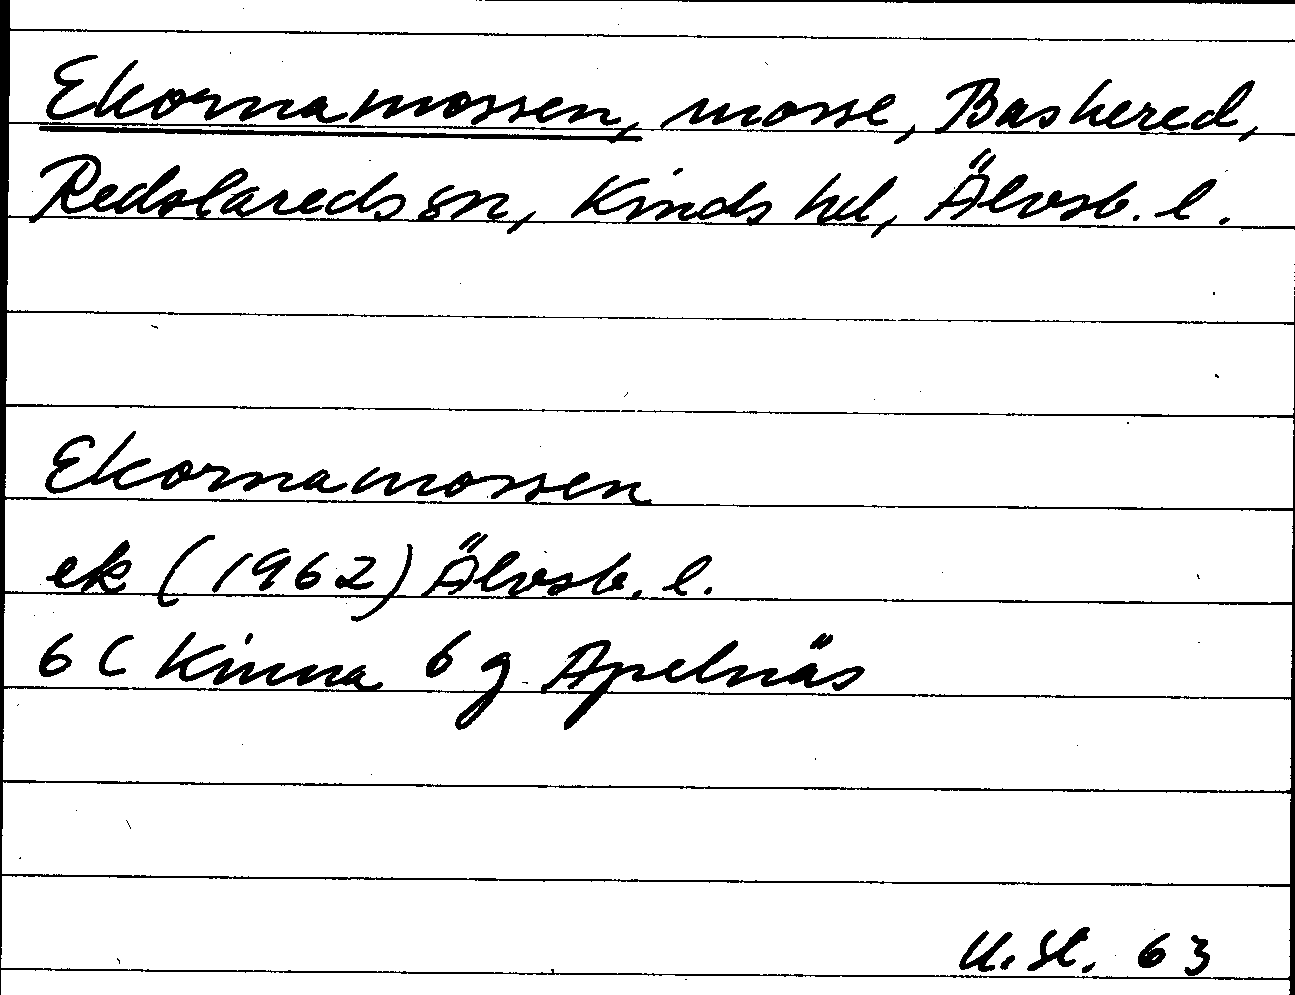 Ekornamossen, mosse, Bashered,
Redslareds sn, Kinds hd, Älvsb. l.
Ekornamossen
ek (1962) Älvsb. l.
6 C Kinna 6 g Apelnäs
U. St. 63